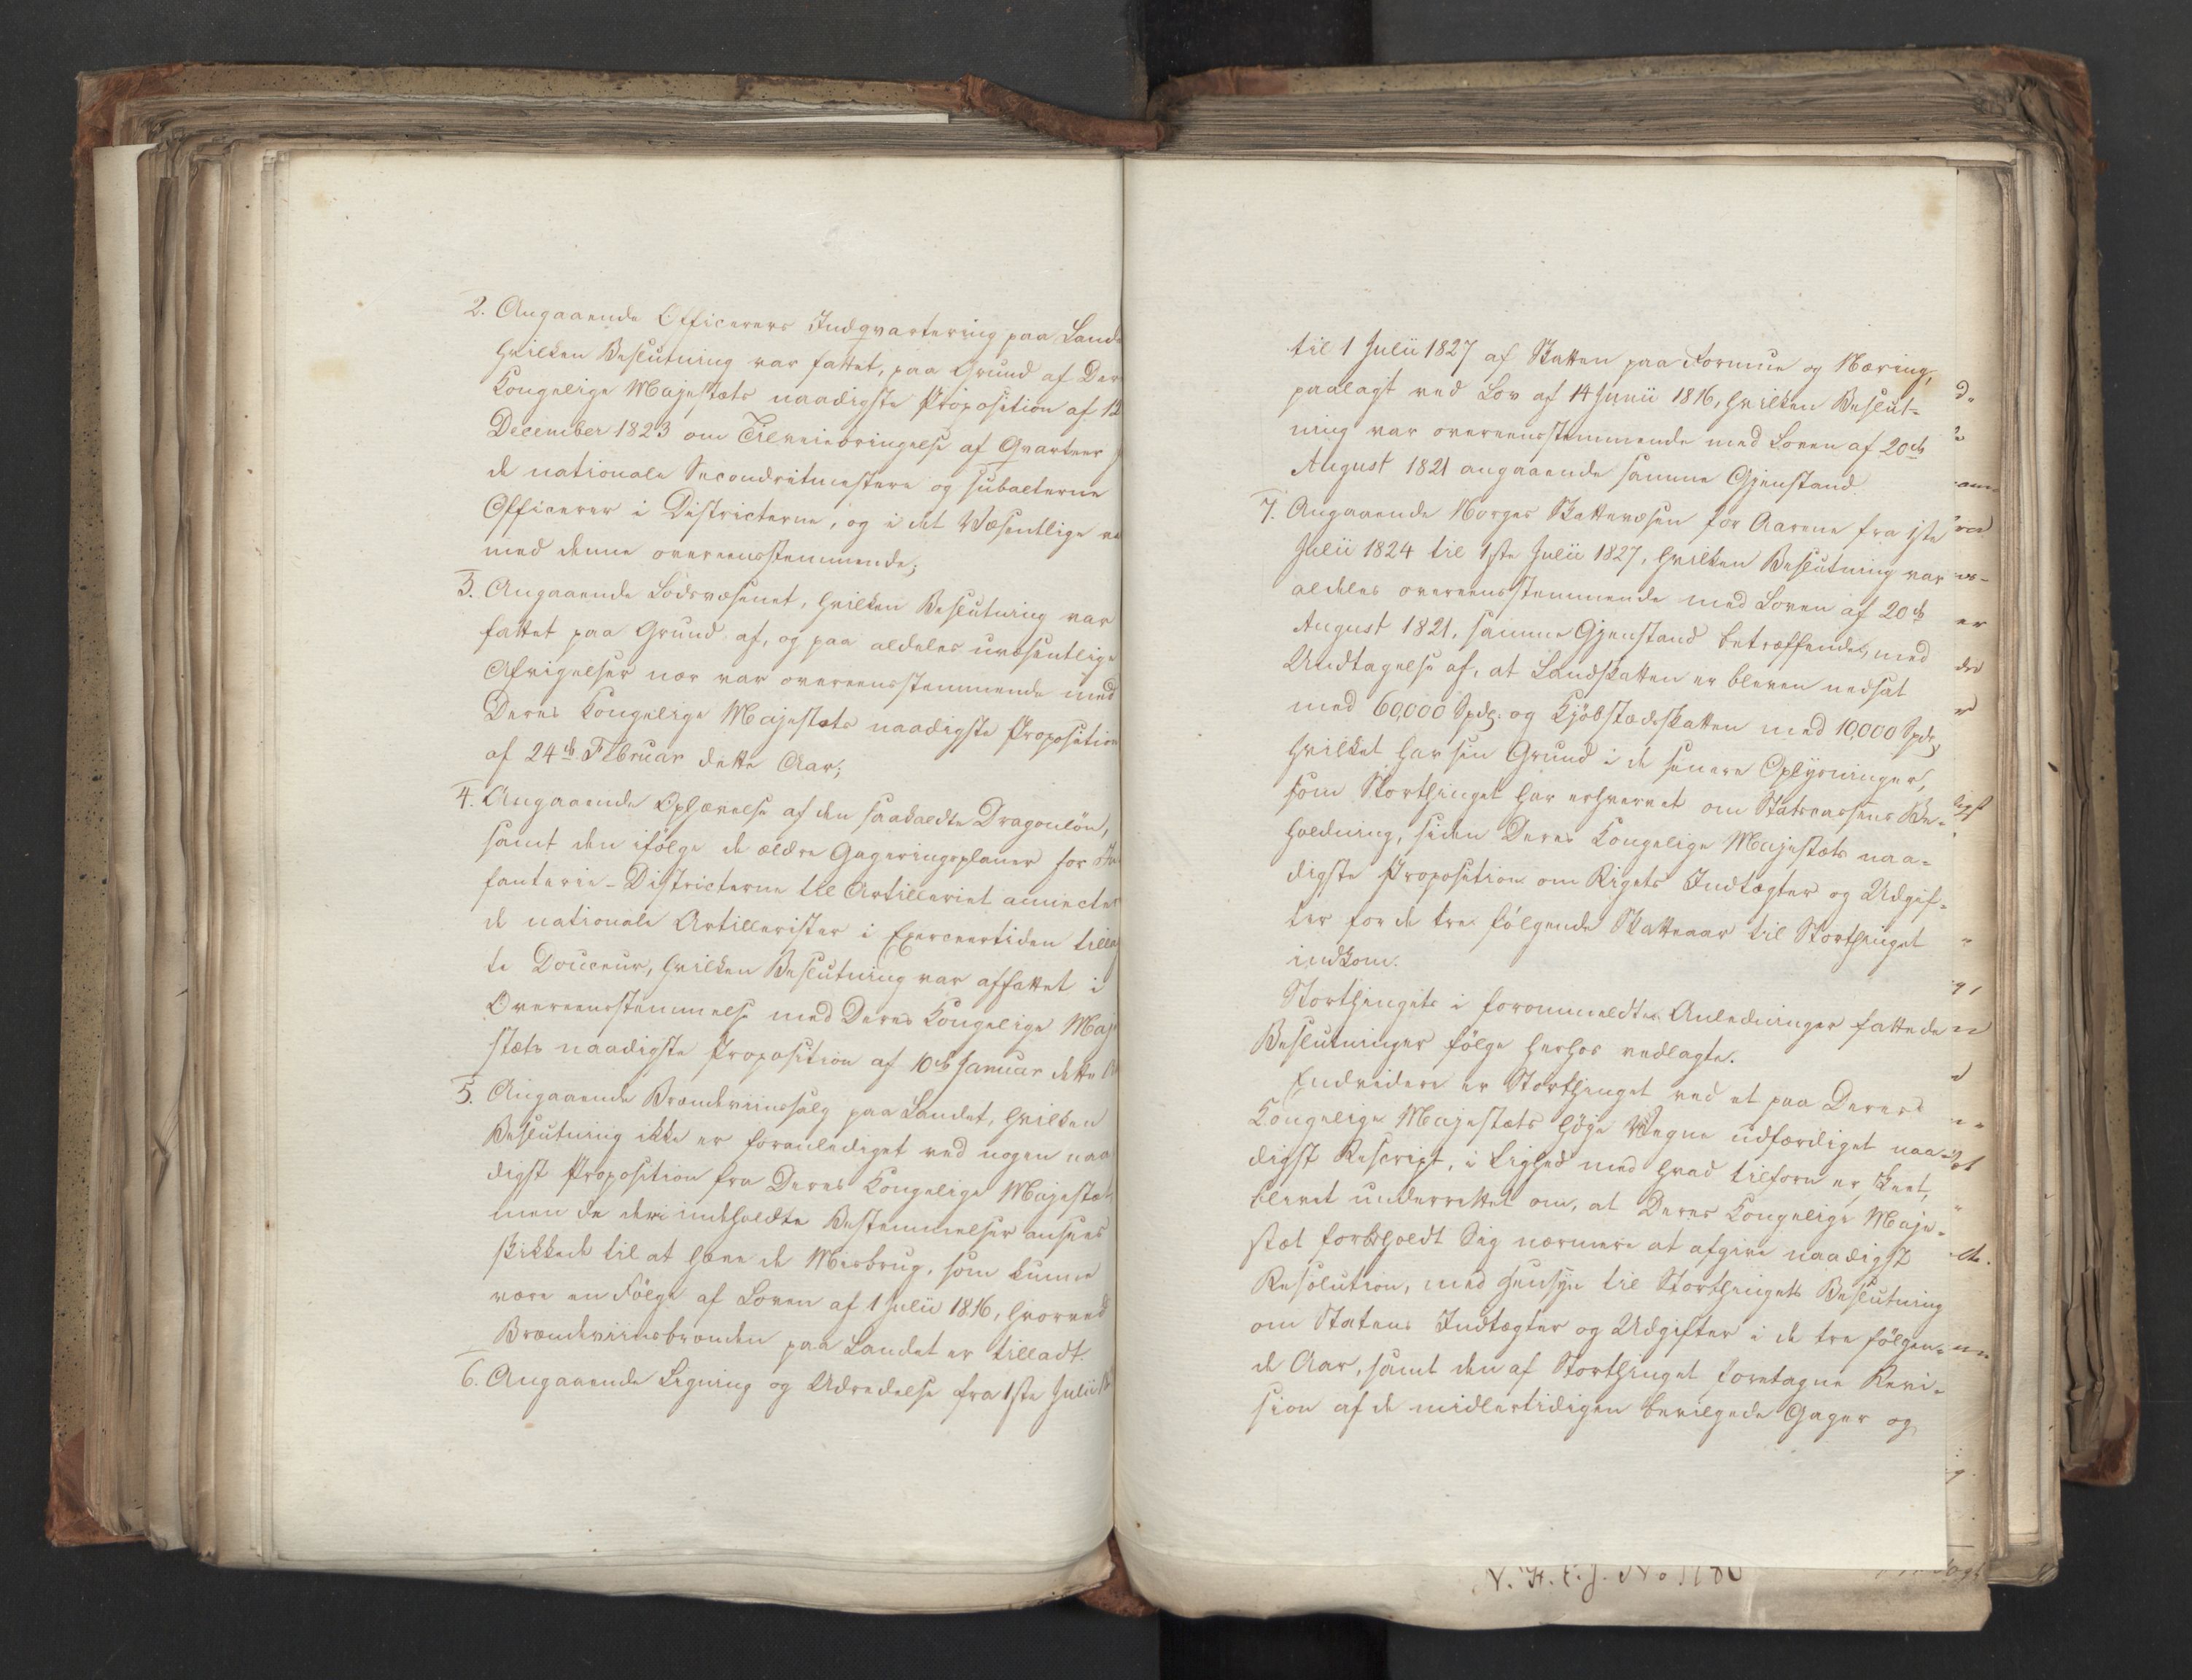 2. Angaaende Officerers Indqvartering paa Lande
hvilken Beslutning var fattet, paa Grund af Der
Kongelige Majestæts naadigste Proposition af 12
December 1823 om Tilveiebringelse af Qvarteer
de nationale Secondritmestere og subalterne
Officerer i Districterne, og i det Væsentlige va
med denne overeensstemmende;
3. Angaaende Lodsvæsenet, hvilken Beslutning var
fattet paa Grund af, og paa aldeles uvæsentlige
Afvigelser nær var overeensstemmende med
Deres Kongelige Majestæts naadigste Proposition
af 24de Februar dette Aar;
4. Angaaende Ophævelse af den saakaldte Dragonlön,
samt den ifölge de ældre Gageringsplaner for In
fanterie-Districterne til Artilleriet annecte
de nationale Artillerister i Exerceertiden tilla
te Douceur, hvilken Beslutning var affattet i
Overeensstemmelse med Deres Kongelige Maje
stæts naadigste Proposition af 10de Januar dette A
5. Angaaende Brændeviinssalg paa Landet, hvilken
Beslutning ikke er foranlediget ved nogen naa
digst Proposition fra Deres Kongelige Majestæt
men de deri indeholdte Bestemmelser ansees
skikkede til at hæve de Misbrug, som kunne
være en Fölge af Loven af 1 Julii 1816, hvorved
Brændeviinsbrænden paa Landet er tilladt.
6. Angaaende Ligning og Udredelse fra 1ste Julii
til 1 Julii 1827 af Skatten paa Formue og Næring,
paalagt ved Lov af 14 Junii 1816, hvilken Beslut-
ning var overeensstemmende med Loven af 20de
August 1821 angaaende samme Gjenstand.
7. Angaaende Norges Skattevæsen for Aarene fra 1ste
Julii 1824 til 1ste Julii 1827, hvilken Beslutning var
aldeles overeensstemmende med Loven af 20de
August 1821, samme Gjenstand betræffende, med
Undtagelse af, at Landskatten er bleven nedsat
med 60,000 Spdlr. og Kjöbstadskatten med 10,000 Spdlr,
hvilket har sin Grund i de senere Oplysninger,
som Storthinget har erhvervet om Statscassens Be-
holdning, siden Deres Kongelige Majestæts naa-
digste Proposition om Rigets Indtægter og Udgif-
ter for de tre følgende Skatteaar til Storthinget
indkom.
Storthingets i forommeldte Anledninger fattede
Beslutninger fölge herhos vedlagte.
Endvidere er Storthinget ved et paa Deres
Kongelige Majestæts höje Vegne udfærdiget naa-
digst Rescript, i Lighed med hvad tilforn er skeet,
blevet underrettet om, at Deres Kongelige Maje-
stæt forbeholdt Sig nærmere at afgive naadigst
Resolution, med Hensyn til Storthingets Beslutning
om Statens Indtægter og Udgifter i de tre fölgen-
de Aar, samt den af Storthinget foretagne Revi-
sion af de midlertidigen bevilgede Gager og